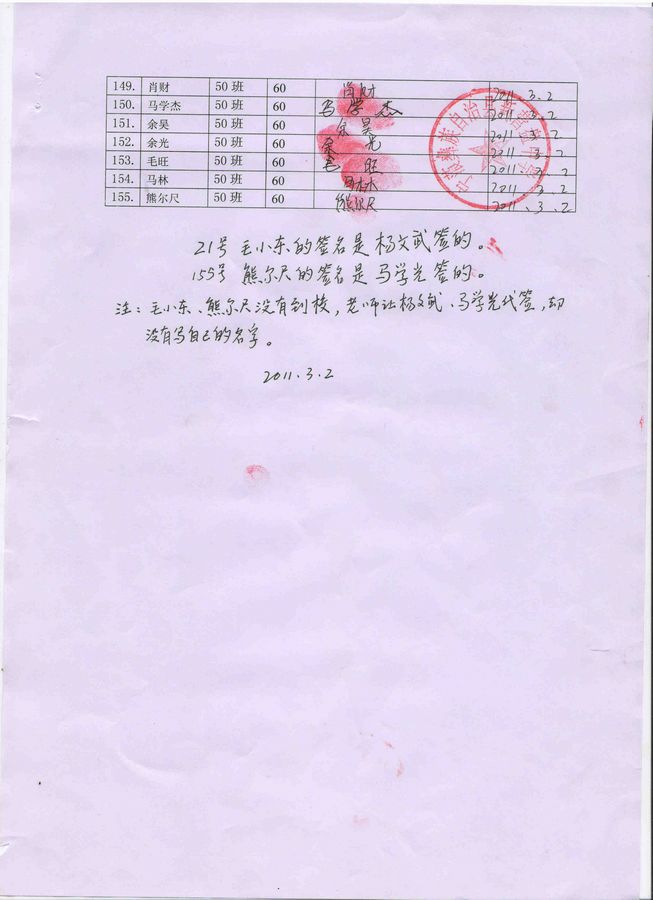 149. 肖财 50 班 60 肖财 2011.3.2
150. 马学杰 50 班 60 马学杰 2011.3.2
151. 余昊 50 班 60 余昊 2011.3.2
152. 余光 50 班 60 余光 2011.3.2
153. 毛旺 50 班 60 毛旺 2011.3.2
154. 马林 50 班 60 马林 2011.3.2
155. 熊尔尺 50 班 60 熊尔尺 2011.3.2
彝族自治县
21号 毛小东的签名是杨文武签的。
155号 熊尔尺的签名是马学光签的。
注：毛小东、熊尔尺没有到校，老师让杨文武、马学光代签，却
没有写自己的名字。
2011.3.2